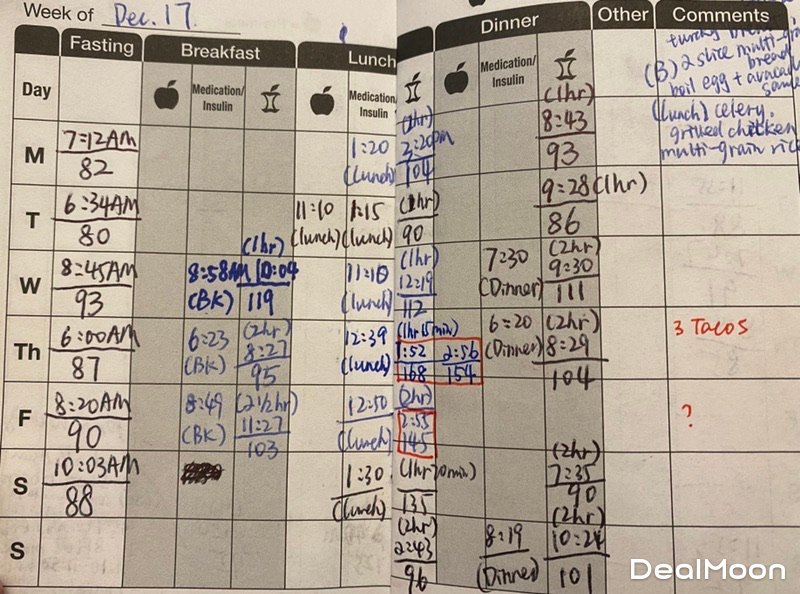 Week of Dec. 17.
Fasting Breakfast Lunch Dinner Other Comments
Day Medication/Insulin Medication/Insulin Medication/Insulin
(B) 2 slice multi-grain
bread
boil egg + avacado
(lunch) celery.
grilled chicken
multi-grain rice
M 7:12AM 1:20 (1hr) 8:43
82 (lunch) 104 93
T 6:34AM 11:10 1:15 (1hr) 9:28 (1hr)
80 (lunch) (lunch) 90 86
W 8:45AM 8:58AM (1hr) 10:09 11:10 (1hr) 12:19 7:30 (2hr) 9:30
93 (BK) 119 (lunch) 112 (Dinner) 111
Th 6:00AM 6:23 (2hr) 8:27 12:39 (1hr 15min) 1:52 2:56 6:20 (2hr) 8:29 3 Tacos
87 (BK) 95 (lunch) 168 154 (Dinner) 104
F 8:20AM 8:49 (2 1/2hr) 11:27 12:50 (2hr) 2:53 ?
90 (BK) 103 (lunch) 145
S 10:03AM 1:30 (2hr) 7:35
88 (lunch) 135 90
S (2hr) 2:43 8:19 (2hr) 10:24
96 (Dinner) 101
DealMoon